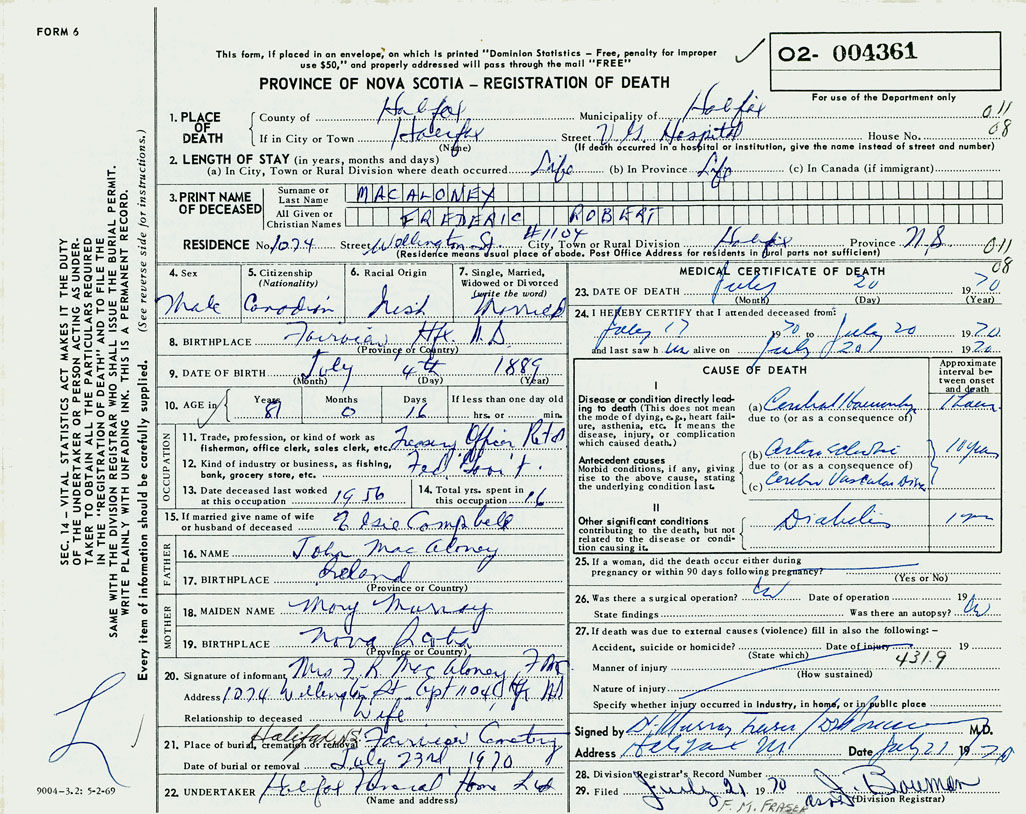 FORM 6
This form, if placed in an envelope, on which is printed "Dominion Statistics – Free, penalty for improper
use $50," and properly addressed will pass through the mail "FREE"
02- 004361
For use of the Department only
PROVINCE OF NOVA SCOTIA – REGISTRATION OF DEATH
1. PLACE OF DEATH
County of Halifax Municipality of Halifax 011
If in City or Town Halifax Street V.G. Hospital House No. 08
(Name) (If death occurred in a hospital or institution, give the name instead of street and number)
2. LENGTH OF STAY (in years, months and days)
(a) In City, Town or Rural Division where death occurred Life (b) In Province Life (c) In Canada (if immigrant)
3. PRINT NAME OF DECEASED
Surname or Last Name MACALONEY
All Given or Christian Names FREDERIC ROBERT
RESIDENCE No. 1074 Street Wellington St. #1104 City, Town or Rural Division Halifax Province N.S. 011
(Residence means usual place of abode. Post Office Address for residents in rural parts not sufficient) 08
4. Sex
Male
5. Citizenship (Nationality)
Canadian
6. Racial Origin
Irish
7. Single, Married, Widowed or Divorced (write the word)
Married
8. BIRTHPLACE Fairview Hfx. N.S.
(Province or Country)
9. DATE OF BIRTH July 4th 1889
(Month) (Day) (Year)
10. AGE in Years 81 Months 0 Days 16 If less than one day old hrs. or min.
OCCUPATION
11. Trade, profession, or kind of work as fisherman, office clerk, sales clerk, etc. Treasury Officer Ret'd
12. Kind of industry or business, as fishing, bank, grocery store, etc. Fed. Gov't.
13. Date deceased last worked at this occupation 1956
14. Total yrs. spent in this occupation 16
15. If married give name of wife or husband of deceased Elsie Campbell
FATHER
16. NAME John MacAloney
17. BIRTHPLACE Ireland
(Province or Country)
MOTHER
18. MAIDEN NAME Mary Murray
19. BIRTHPLACE Nova Scotia
(Province or Country)
20. Signature of informant Mrs F. R. MacAloney
Address 1074 Wellington St. Apt 1104 Hfx NS
Relationship to deceased Wife
21. Place of burial, cremation or removal Halifax N.S. Fairview Cemetery
Date of burial or removal July 23rd, 1970
22. UNDERTAKER Halifax Funeral Home Ltd
(Name and address)
MEDICAL CERTIFICATE OF DEATH
23. DATE OF DEATH July 20 1970
(Month) (Day) (Year)
24. I HEREBY CERTIFY that I attended deceased from:
July 17 1970 to July 20 1970
and last saw him alive on July 20 1970
CAUSE OF DEATH
Approximate interval between onset and death
I
Disease or condition directly leading to death (This does not mean the mode of dying, e.g., heart failure, asthenia, etc. It means the disease, injury, or complication which caused death.)
(a) Cerebral Hemorrhage
due to (or as a consequence of)
Antecedent causes
Morbid conditions, if any, giving rise to the above cause, stating the underlying condition last.
(b)
due to (or as a consequence of) 10 years
(c) Cerebro Vascular
II
Other significant conditions contributing to the death, but not related to the disease or condition causing it.
Diabetes
25. If a woman, did the death occur either during pregnancy or within 90 days following pregnancy?
(Yes or No)
26. Was there a surgical operation? Date of operation 19
State findings Was there an autopsy?
27. If death was due to external causes (violence) fill in also the following: –
Accident, suicide or homicide? Date of injury 19
(State which) 431.9
Manner of injury
(How sustained)
Nature of injury
Specify whether injury occurred in industry, in home, or in public place
Signed by D. Murray Fraser M.D.
Address Halifax Date July 21 1970
28. Division Registrar's Record Number
29. Filed July 21 1970 J. Bowman
F. M. FRASER (Division Registrar)
SEC. 14 – VITAL STATISTICS ACT MAKES IT THE DUTY
OF THE UNDERTAKER OR PERSON ACTING AS UNDER-
TAKER TO OBTAIN ALL THE PARTICULARS REQUIRED
IN THE "REGISTRATION OF DEATH" AND TO FILE THE
SAME WITH THE DIVISION REGISTRAR WHO SHALL ISSUE THE BURIAL PERMIT.
WRITE PLAINLY WITH UNFADING INK. THIS IS A PERMANENT RECORD.
Every item of information should be carefully supplied. (See reverse side for instructions.)
9004-3.2: 5-2-69